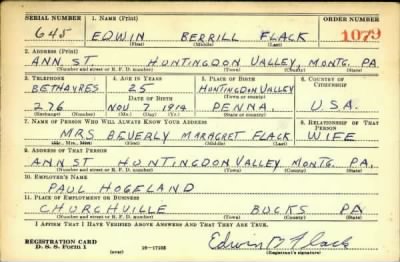 SERIAL NUMBER 1. NAME (Print) ORDER NUMBER
645 EDWIN BERRILL FLACK 1079
(First) (Middle) (Last)
2. ADDRESS (Print)
ANN ST. HUNTINGDON VALLEY, MONTG. PA
(Number and street or R. F. D. number) (Town) (County) (State)
3. TELEPHONE 4. AGE IN YEARS 5. PLACE OF BIRTH 6. COUNTRY OF CITIZENSHIP
BETHAYRES 25 HUNTINGDON VALLEY
DATE OF BIRTH (Town or county)
276 NOV 7 1914 PENNA. U.S.A.
(Exchange) (Number) (Mo.) (Day) (Yr.) (State or country)
7. NAME OF PERSON WHO WILL ALWAYS KNOW YOUR ADDRESS 8. RELATIONSHIP OF THAT PERSON
MRS BEVERLY MARAGRET FLACK WIFE
(Mr., Mrs., Miss) (First) (Middle) (Last)
9. ADDRESS OF THAT PERSON
ANN ST HUNTINGDON VALLEY MONTG. PA.
(Number and street or R. F. D. number) (Town) (County) (State)
10. EMPLOYER'S NAME
PAUL HOGELAND
11. PLACE OF EMPLOYMENT OR BUSINESS
CHURCHVILLE BUCKS PA
(Number and street or R. F. D. number) (Town) (County) (State)
I AFFIRM THAT I HAVE VERIFIED ABOVE ANSWERS AND THAT THEY ARE TRUE.
REGISTRATION CARD
D. S. S. Form 1 (over) 16—17105 Edwin B Flack
(Registrant's signature)